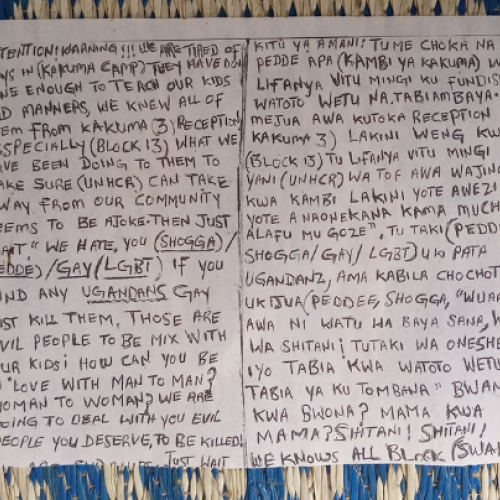 TENTION! WARNING!!! WE ARE TIRED OF
YS IN (KAKUMA CAMP) THEY HAVE DON
NE ENOUGH TO TEACH OUR KIDS
D MANNERS, WE KNEW ALL OF
EM FROM KAKUMA (3) RECEPTION
SPECIALLY (BLOCK 13) WHAT WE
VE BEEN DOING TO THEM TO
AKE SURE (UNHCR) CAN TAKE
WAY FROM OUR COMMUNITY
EEMS TO BE A JOKE. THEN JUST
"WE HATE, YOU (SHOGGA)/
EDDE)/GAY (LGBT) IF YOU
ND ANY UGANDANS GAY
UST KILL THEM, THOSE ARE
VIL PEOPLE TO BE MIX WITH
UR KIDS! HOW CAN YOU BE
"LOVE WITH MAN TO MAN?
WOMAN TO WOMAN? WE ARE
OING TO DEAL WITH YOU EVIL
EOPLE YOU DESERVE, TO BE KILLED!
JUST WAIT
KITU YA AMANI! TUME CHOKA NA
PEDDE APA (KAMBI YA KAKUMA) W
LIFANYA VITU MINGI KU FUNDIS
WATOTO WETU NA. TABIAMBAYA.
MEJUA AWA KUTOKA RECEPTION
KAKUMA 3) LAKINI WENG KU
(BLOCK 13) TU LIFANYA VITU MINGI
YANI (UNHCR) WA TOF AWA WAJING
KWA KAMBI LAKINI YOTE AWEZI
YOTE ANAONEKANA KAMA MUCH
ALAFU MU GOZE", TU TAKI (PEDD
SHOGGA/GAY/LGBT) UKI PATA
UGANDANZ, AMA KABILA CHOCHOT
UKIJUA (PEDDEE, SHOGGA, "WUAR
AWA NI WATU WA BAYA SANA, W
WA SHITANI! TUTAKI WA ONESHE
IYO TABIA KWA WATOTO WETU
TABIA YA KU TOMBANA" BWAN
KWA BWONA? MAMA KWA
MAMA? SHITANI! SHITANI!
WE KNOWS ALL BLOCK (SWAH